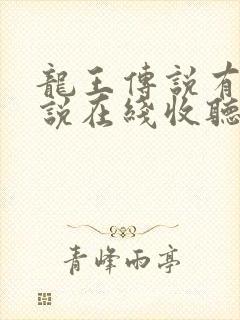 龍王傳說有
說在綫收聽
青峰雨亭